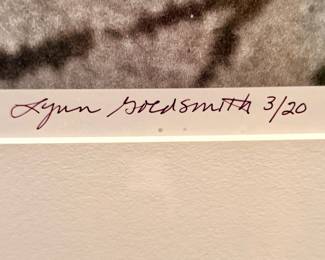 Lynn Goldsmith 3/20